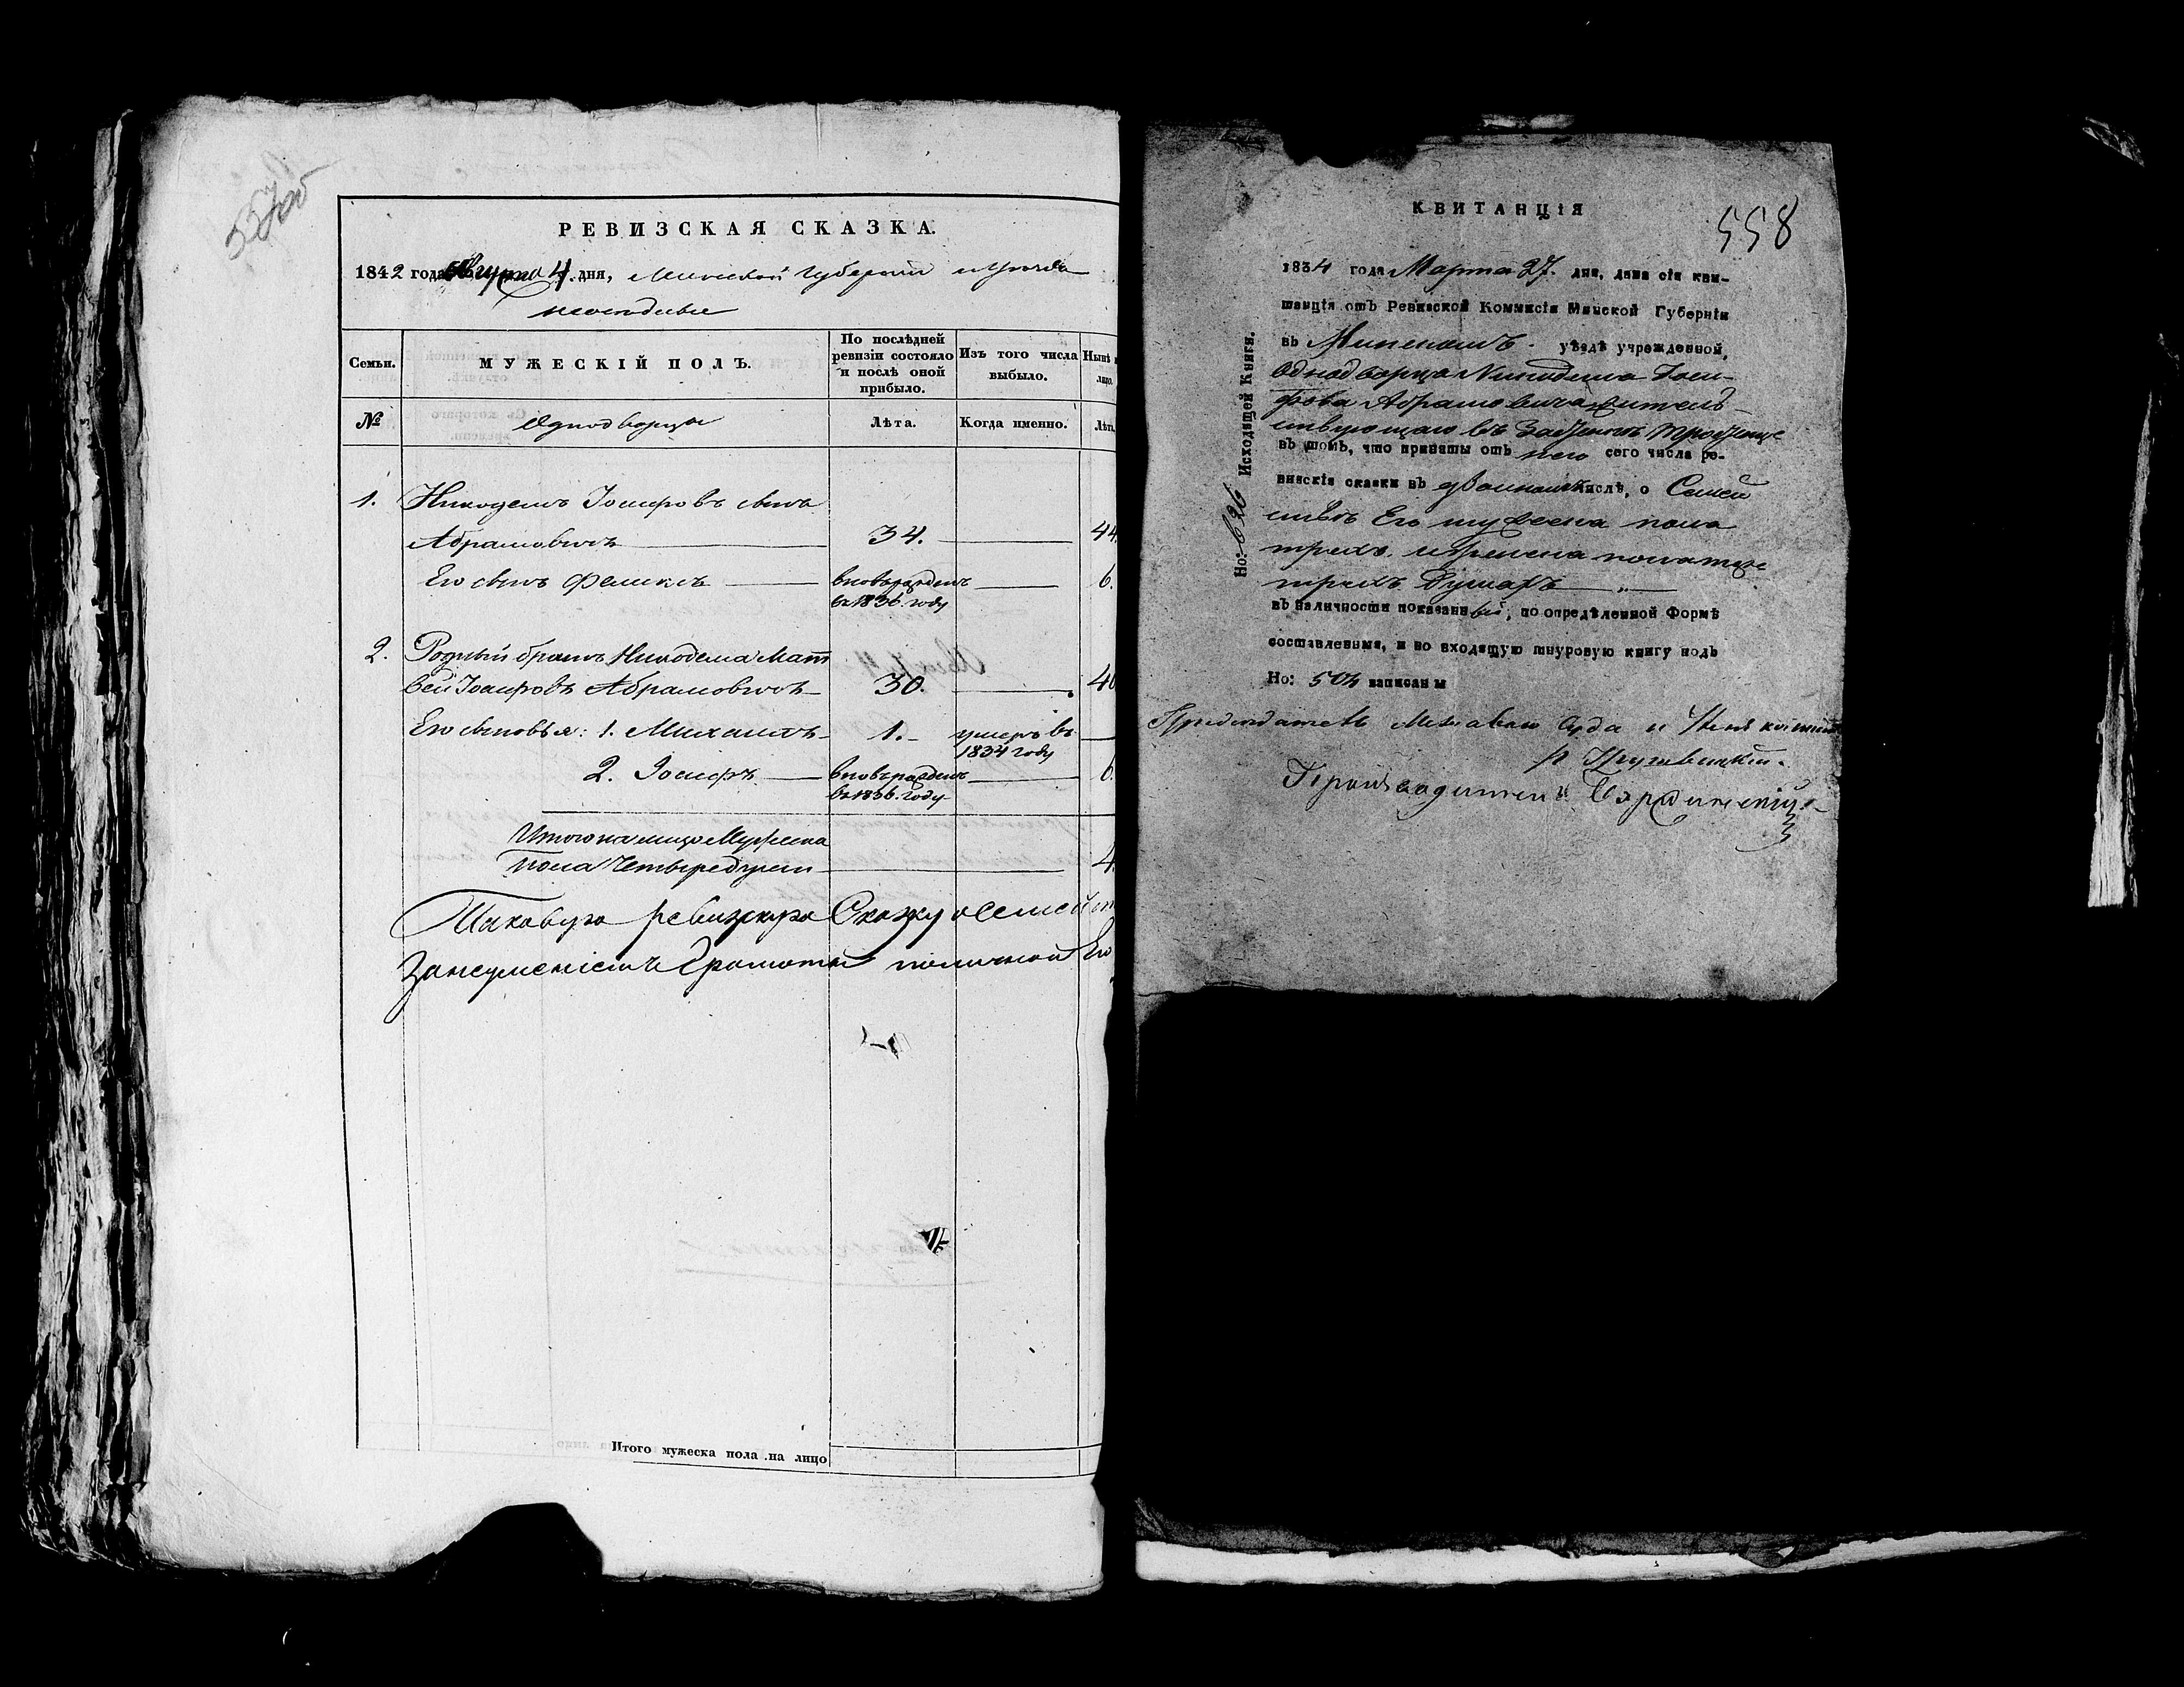 557об
РЕВИЗСКАЯ СКАЗКА.
1842 года Августа 4. дня, Минской Губернии и уезда
Семьи.
МУЖЕСКІЙ ПОЛЪ.
По послѣдней ревизіи состояло и послѣ оной прибыло.
Изъ того числа выбыло.
Нынѣ
лицо.
№
Однодворцы
Лѣта.
Когда именно.
Лѣта
1. Никодемъ Іосифовъ сынъ
Абрамовичъ 34. 44
Его сынъ Феликсъ вновьрожденъ 6.
въ 1836. году
2. Родный братъ Никодема Мат
вей Іосифовъ Абрамовичъ 30. 40
Его сыновья: 1. Михаилъ 1. умеръ въ
1834 году
2. Іосифъ вновьрожденъ 6.
въ 1836. году
Итого на лицо Мужеска
пола Четыре души 4.
Таковую ревизкую Скаску о Семейст
Занеуменіемъ Грамоты по личной Его
Итого мужеска пола на лицо
КВИТАНЦІЯ
558
1834 года Марта 27. дня, дана сія кви-
танція отъ Ревизской Коммисіи Минской Губерніи
въ Минскомъ уѣздѣ учрежденной,
Однодворца Никодема Іоси-
фова Абрамовича жительст-
вующаго въ
въ томъ, что приняты отъ него сего числа ре-
визскія сказки въ двойномъ числѣ, о Семей
ствѣ Его мужеска пола
трехъ и женска пола тоже
трехъ Душахъ
въ наличности показанныя, по опредѣленной Формѣ
составленныя, и во входящую шнуровую книгу подъ
Но: 504 записаны
Но: 626 Исходящей Книги.
Председатель
Производитель